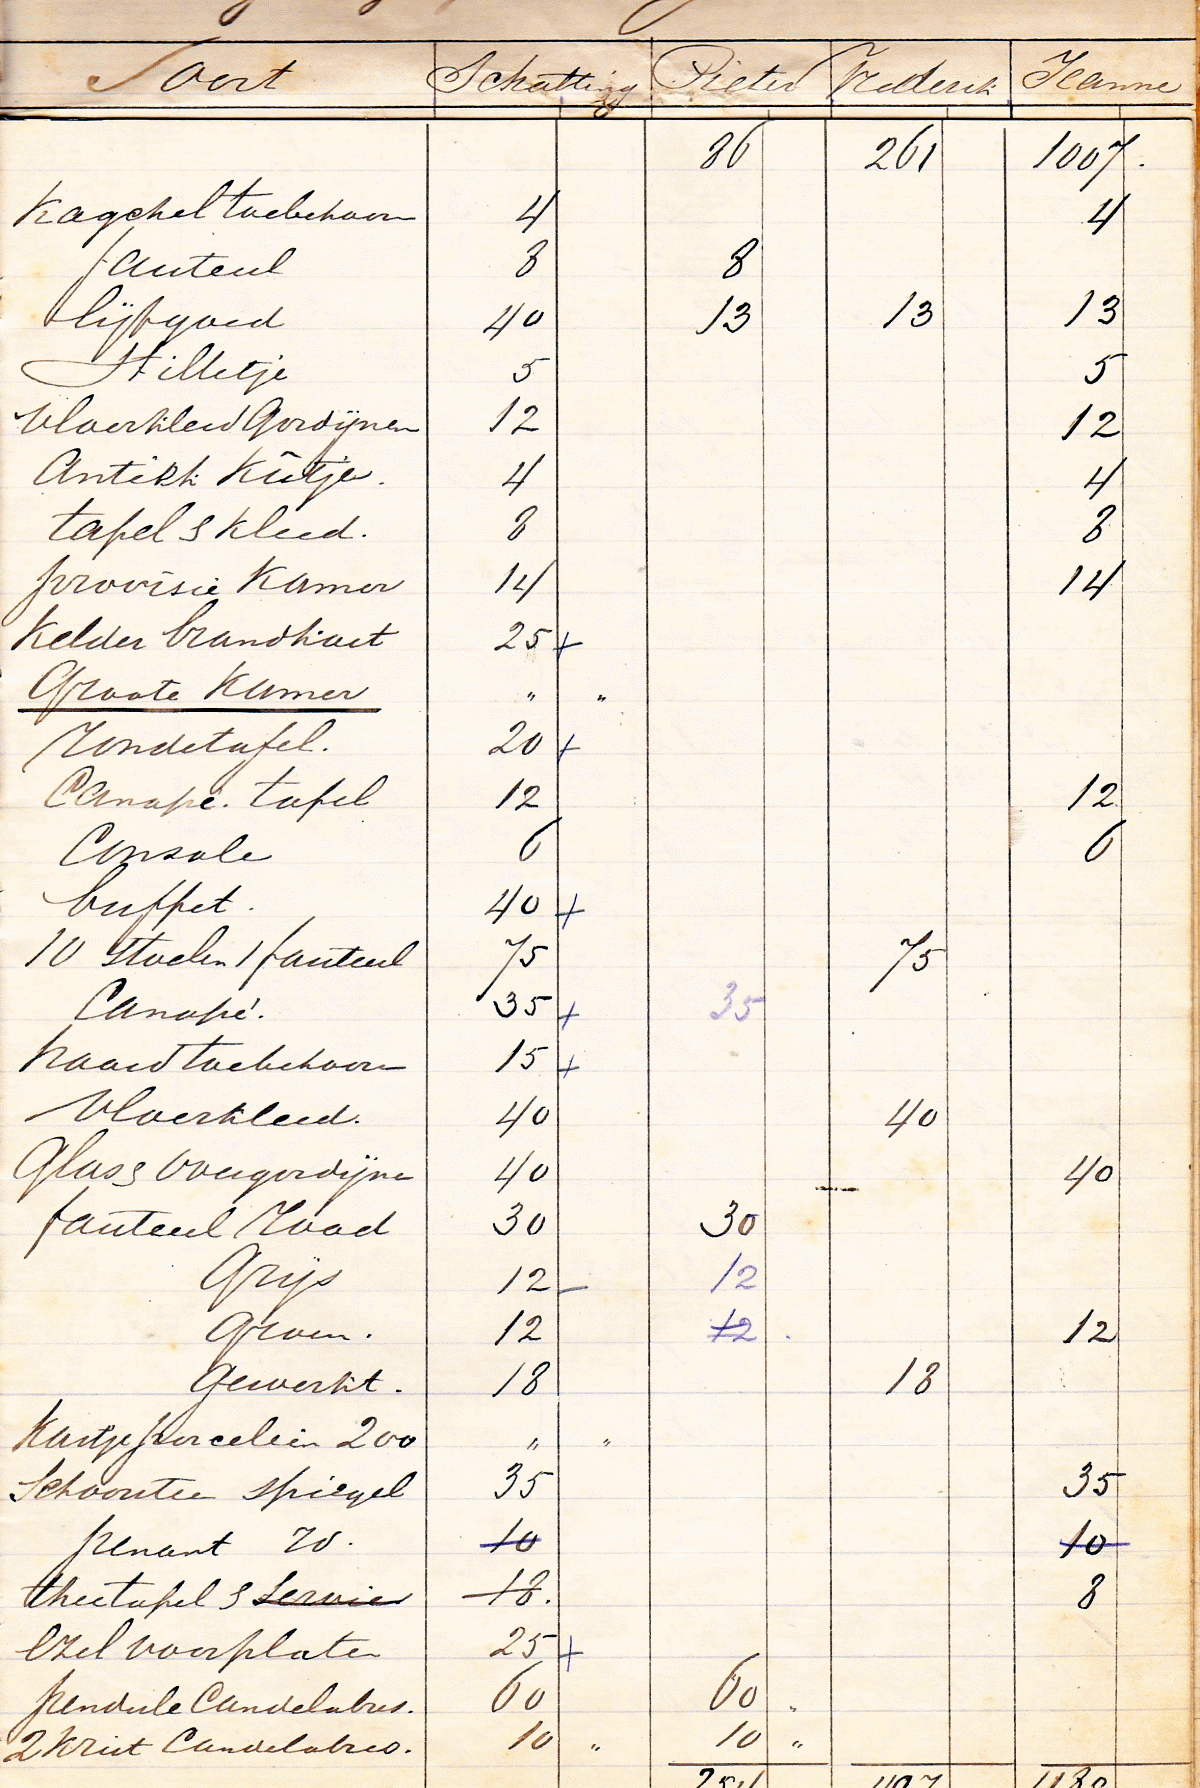 Soort Schatting Pieter Frederik Jeanne
86 261 1007.
Kagchel toebehoren 4 4
fauteul 8 8
lijfgoed 40 13 13 13
Stilletje 5 5
Vloerkleed Gordijnen 12 12
Antiek Kistje. 4 4
tafel & kleed. 8 8
provisie Kamer 14 14
Kelder brandhout 25 +
Groote Kamer " "
Rondetafel. 20 +
Canape. tafel 12 12
Console 6 6
buffet. 40 +
10 stoelen 1 fauteul 75 75
Canapé. 35 + 35
haard toebehoren 15 +
Vloerkleed. 40 40
Glas & overgordijnen 40 40
fauteul Rood 30 30
Grijs 12 – 12
Groen. 12 12 . 12
Gewerkt. 18 18
Kastje porcelein 200 " "
Schoorsteen spiegel 35 35
penant 10 10
theetafel & servies 18. 8
Ezel voorplaten 25 +
pendule Candelabres. 60 60
2 Krist Candelabres. 10 " 10 "